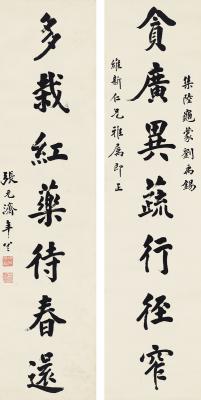 貪廣異蔬行徑窄
集陸龜蒙劉禹錫
維新仁兄雅屬即正
多栽紅藥待春還
張元濟年